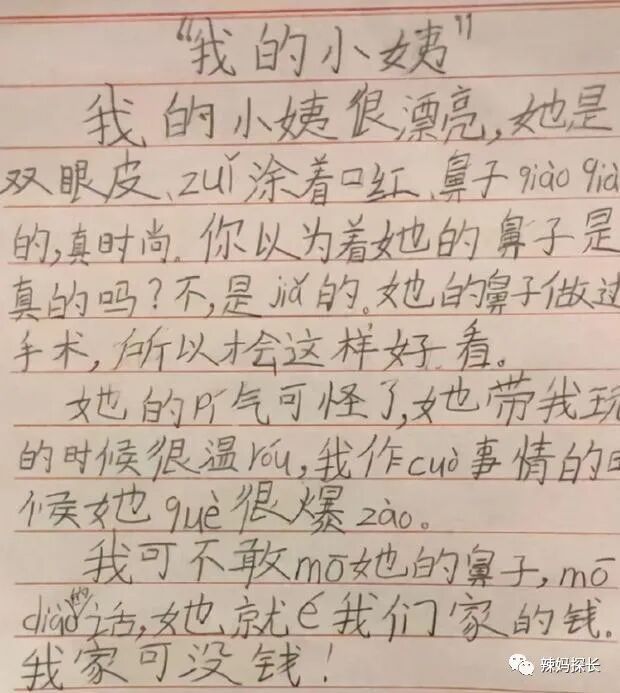 “我的小姨”
我的小姨很漂亮,她是
双眼皮、zuǐ涂着口红、鼻子qiào qià
的,真时尚。你以为着她的鼻子是
真的吗?不,是jiǎ的。她的鼻子做过
手术,所以才会这样好看。
她的pí气可怪了,她带我玩
的时候很温róu,我作cuò事情的时
候她què很爆zào。
我可不敢mō她的鼻子,mō
diào的话,她就é我们家的钱。
我家可没钱!
辣妈探长